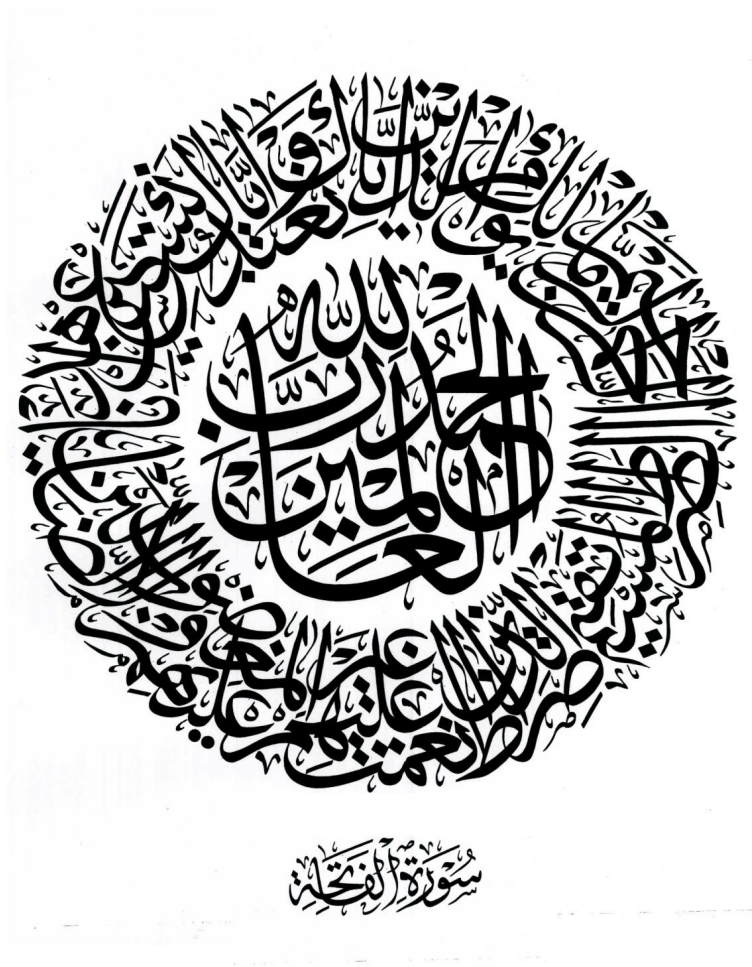 الحمد لله رب العالمين
الرحمن الرحيم مالك يوم الدين إياك نعبد وإياك نستعين اهدنا الصراط المستقيم صراط الذين أنعمت عليهم غير المغضوب عليهم ولا الضالين
سُورَةُ الْفَاتِحَةِ